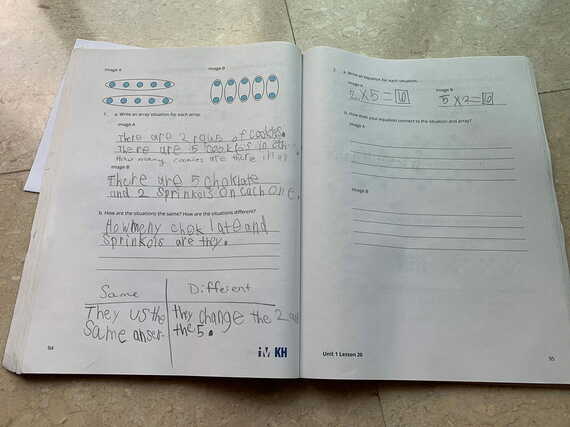 Image A
Image B
1. a. Write an array situation for each array.
Image A
There are 2 rows of cookies.
There are 5 cookies in
How many cookies are there
Image B
There are 5 choklate
and 2 sprinkols on each one.
b. How are the situations the same? How are the situations different?
How meny chok late and
sprinkols are they.
Same Different
They us the they change the 2 and
same anser. the 5.
94
KH
2. a. Write an equation for each situation.
Image A
Image B
2 x 5 = 10
5 x 2 = 10
b. How does your equation connect to the situation and array?
Image A
Image B
Unit 1 Lesson 20
95